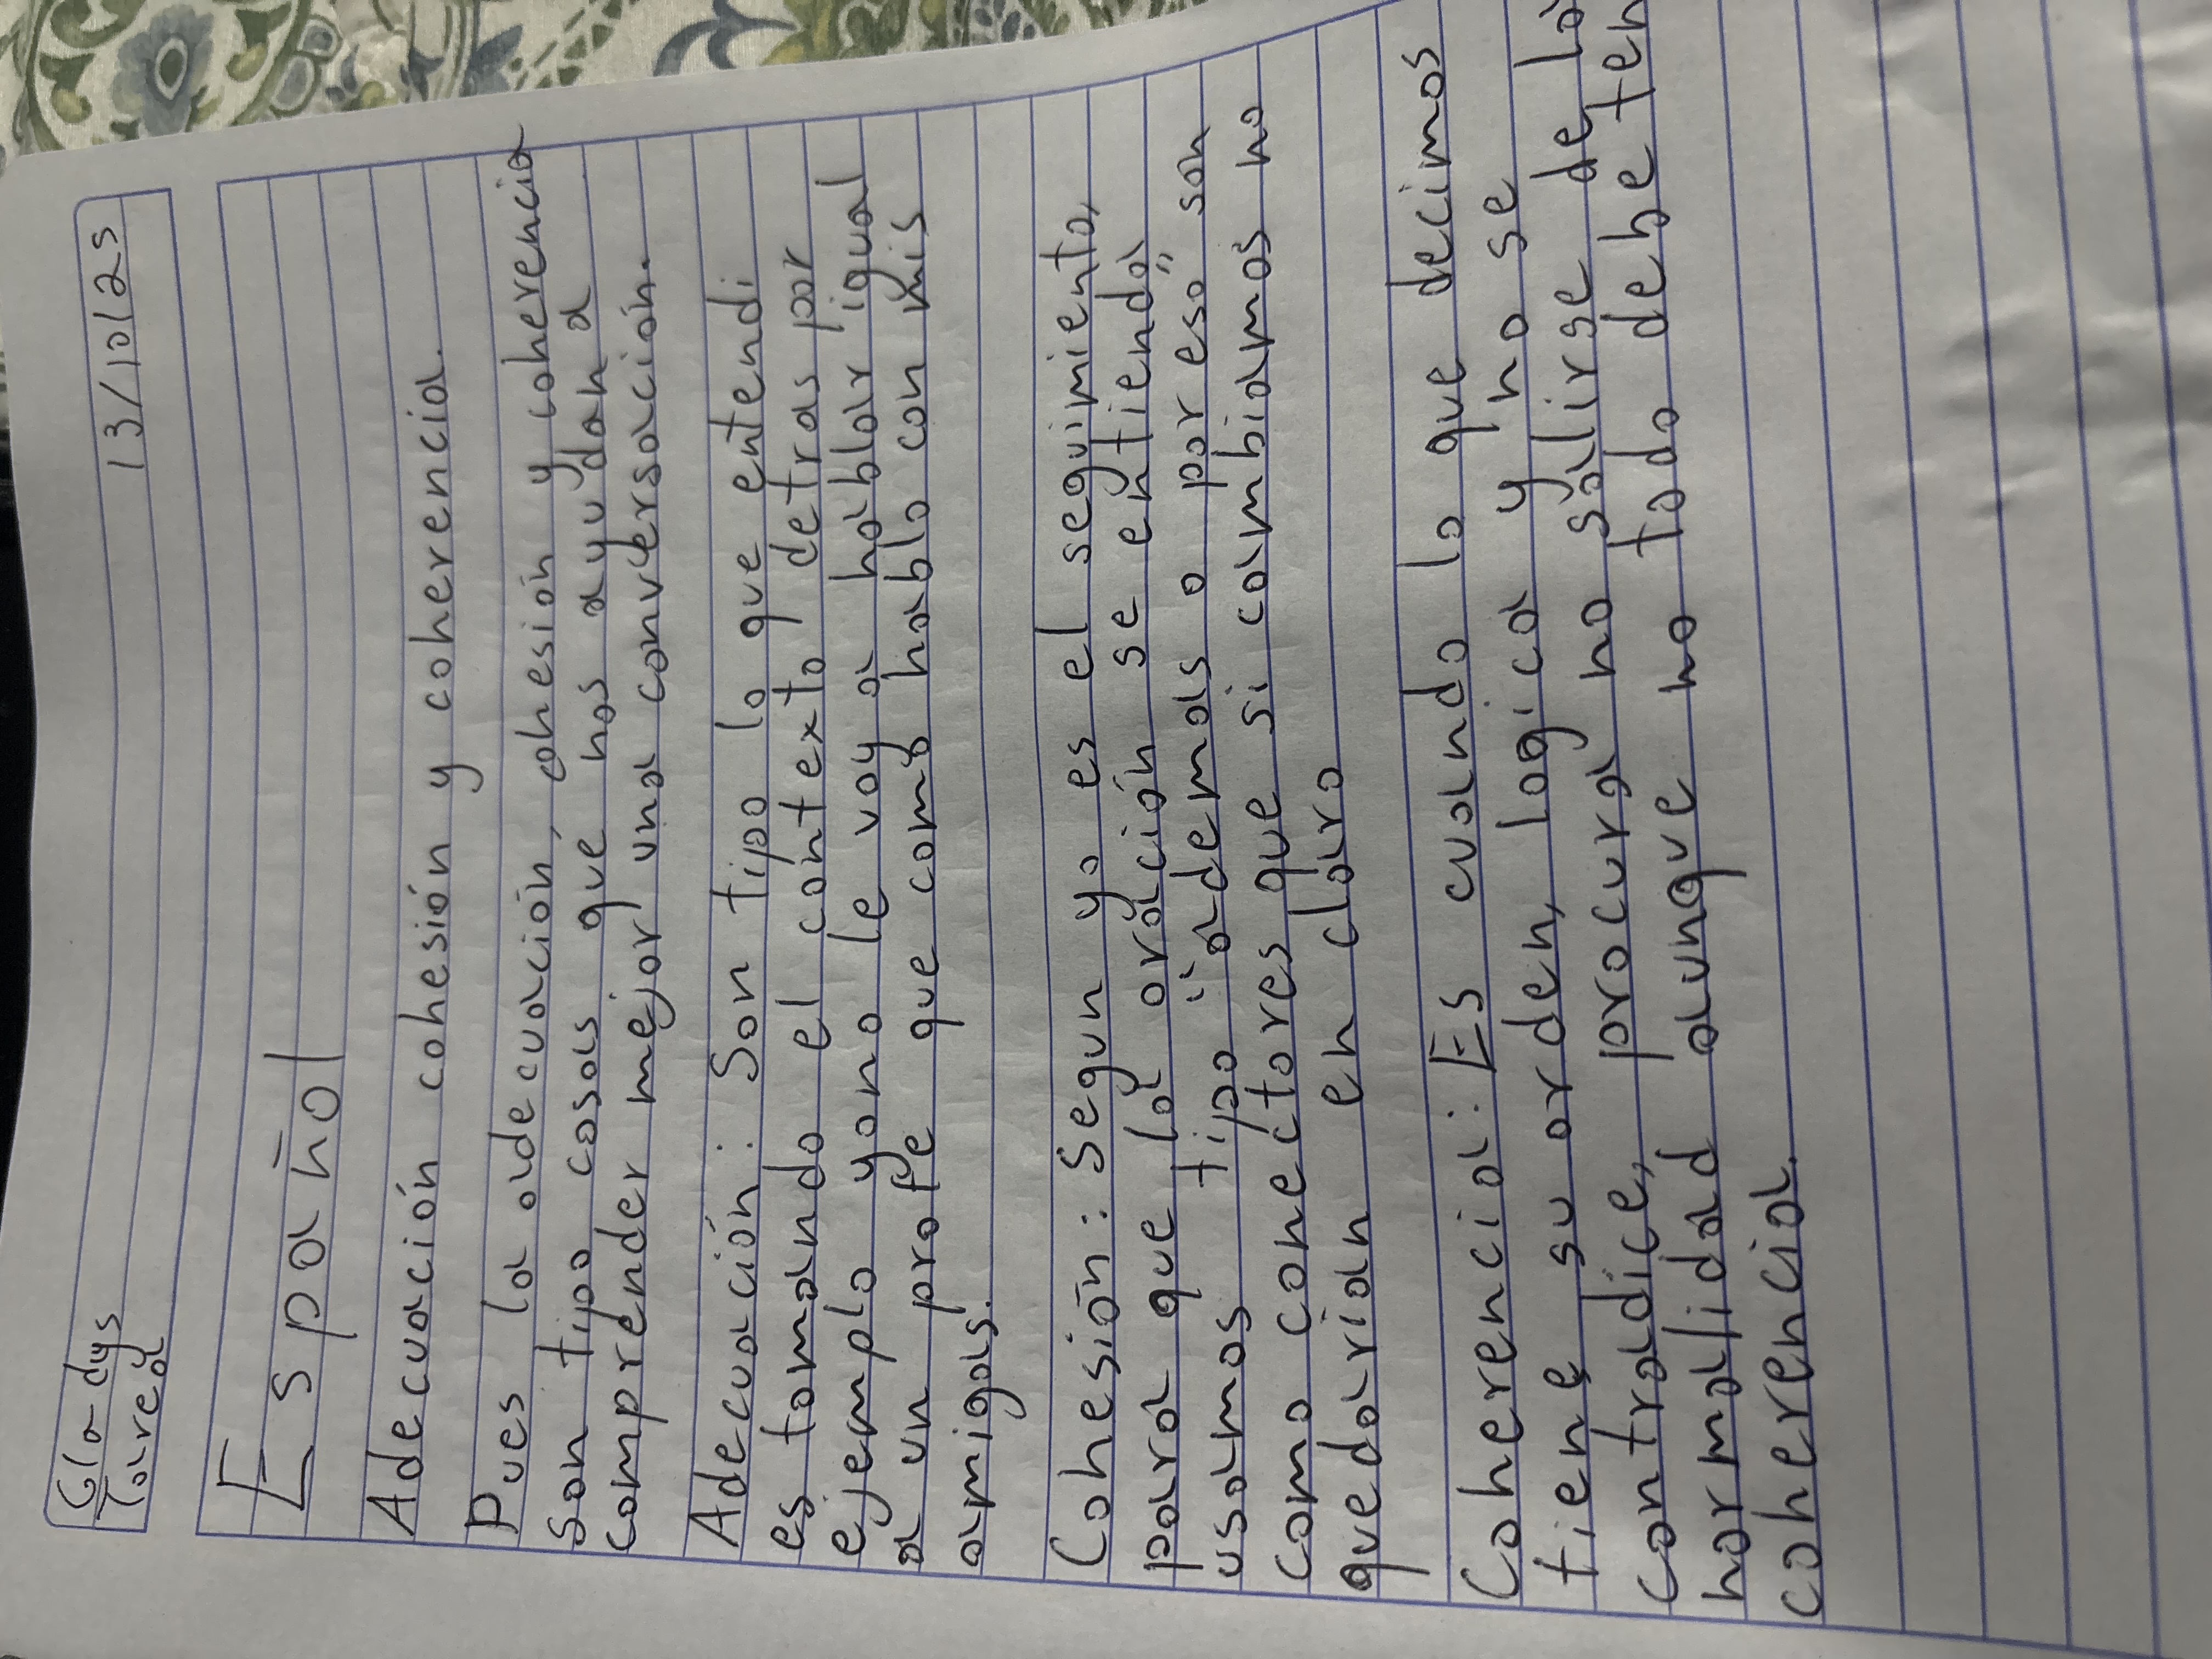 Gladys
Tarea
13/10/25
Español
Adecuación cohesión y coherencia.
Pues la adecuación, cohesión y coherencia
son tipo cosas que nos ayudan a
comprender mejor una conversación.
Adecuación: Son tipo lo que entendi
es tomando el contexto detras por
ejemplo yo no le voy a hablar igual
a un profe que como hablo con mis
amigas.
Cohesión: Segun yo es el seguimiento,
para que la oración se entienda
usamos tipo "ademas o por eso" son
como conectores que si cambiamos no
quedarian en claro
Coherencia: Es cuando lo que decimos
tiene su orden, logica y no se
contradice, procura no salirse de la
normalidad aunque no todo debe ten
coherencia.